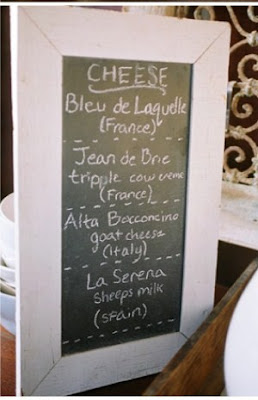 CHEESE
Bleu de Laquelle
(France)
Jean de Brie
tripple cow creme
(France)
Alta Bocconcino
goat cheese
(Italy)
La Serena
sheeps milk
(spain)